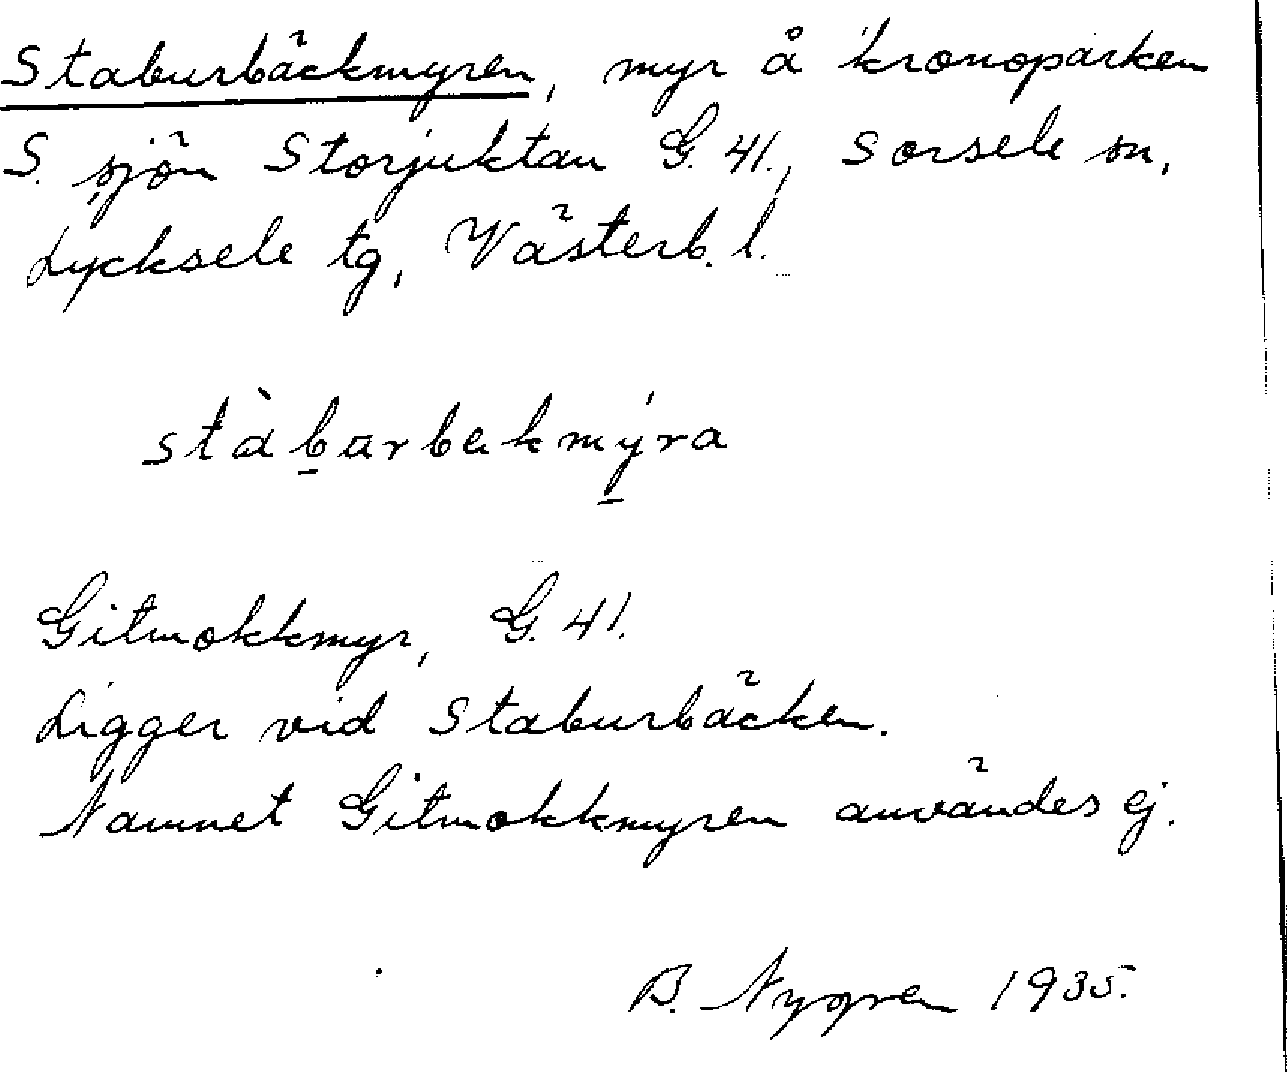 Staburbäckmyren, myr å kronoparken
S. sjön Storjuktan G. 41., Sorsele sn,
Lycksele tg, Västerb. l.
stàb̲arbekmý̲ra
Gitmokkmyr, G. 41.
Ligger vid Staburbäcken.
Namnet Gitmokkmyren användes ej.
B. Nygren 1935.